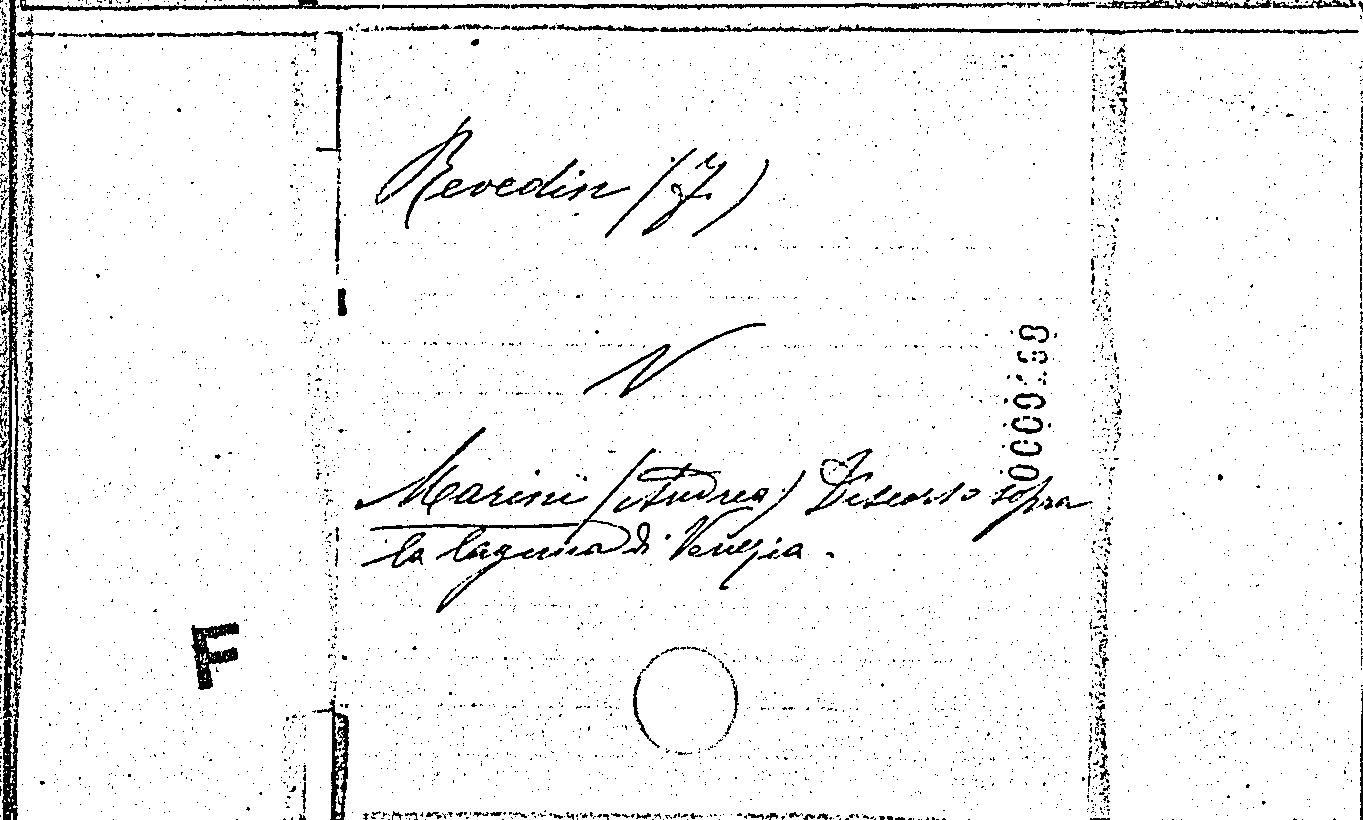 Revedin (J.)
V
Marini (Andrea) Discorso sopra
la laguna di Venezia.
F